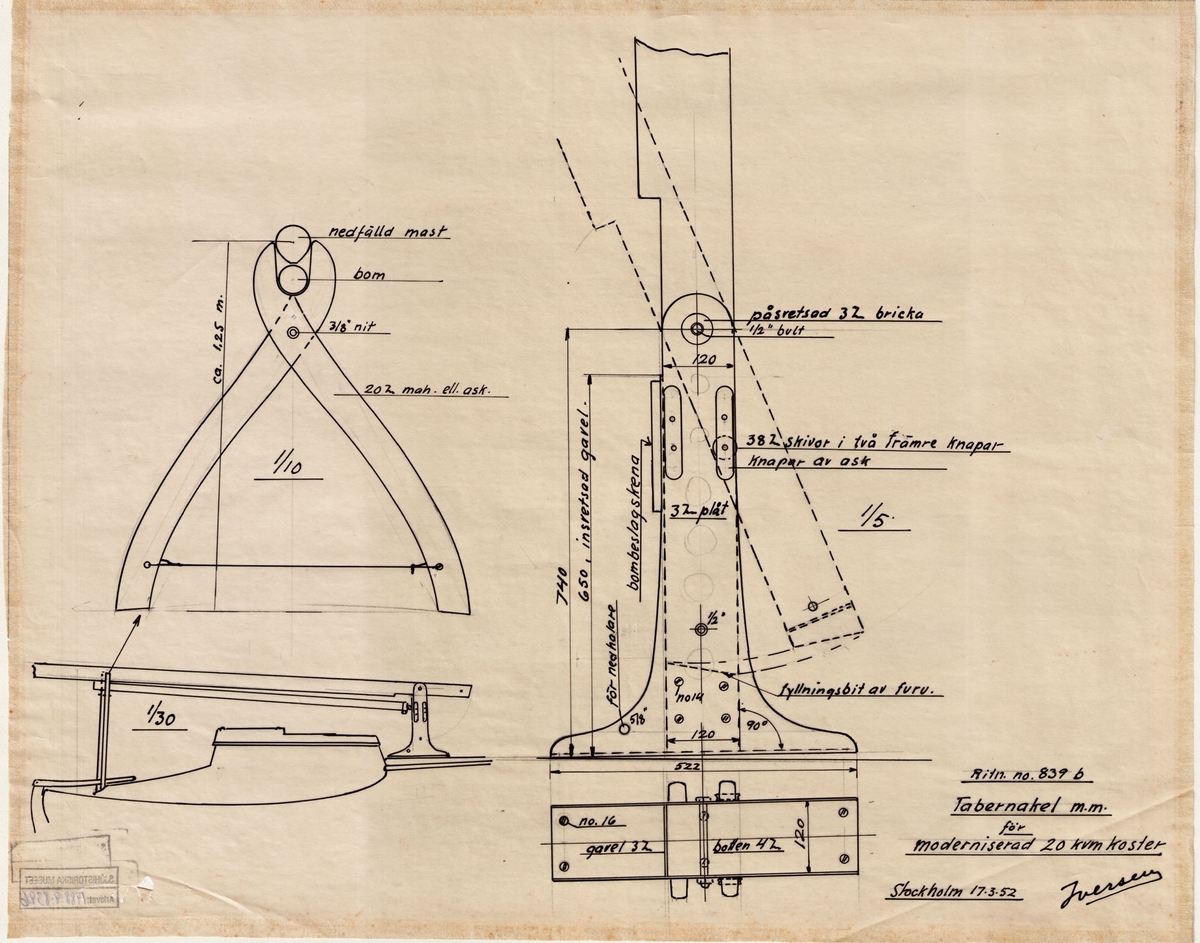 nedfälld mast
bom
3/8" nit
ca. 1,25 m.
20 Z mah. ell. ask.
1/10
1/30
påsvetsad 3Z bricka
1/2" bult
120
38Z skivor i två främre knapar
knapar av ask
3Z plåt
1/5.
740
650, insvetsad gavel.
bombeslagskena
för nedhalare
1/2"
no 14
5/8"
fyllningsbit av furu.
90°
120
522
no. 16
gavel 3Z
botten 4Z
120
Ritn. no. 839 b
Tabernakel m.m.
för
moderniserad 20 kvm koster
Stockholm 17.3.52
Iversen
SJÖHISTORISKA MUSEET